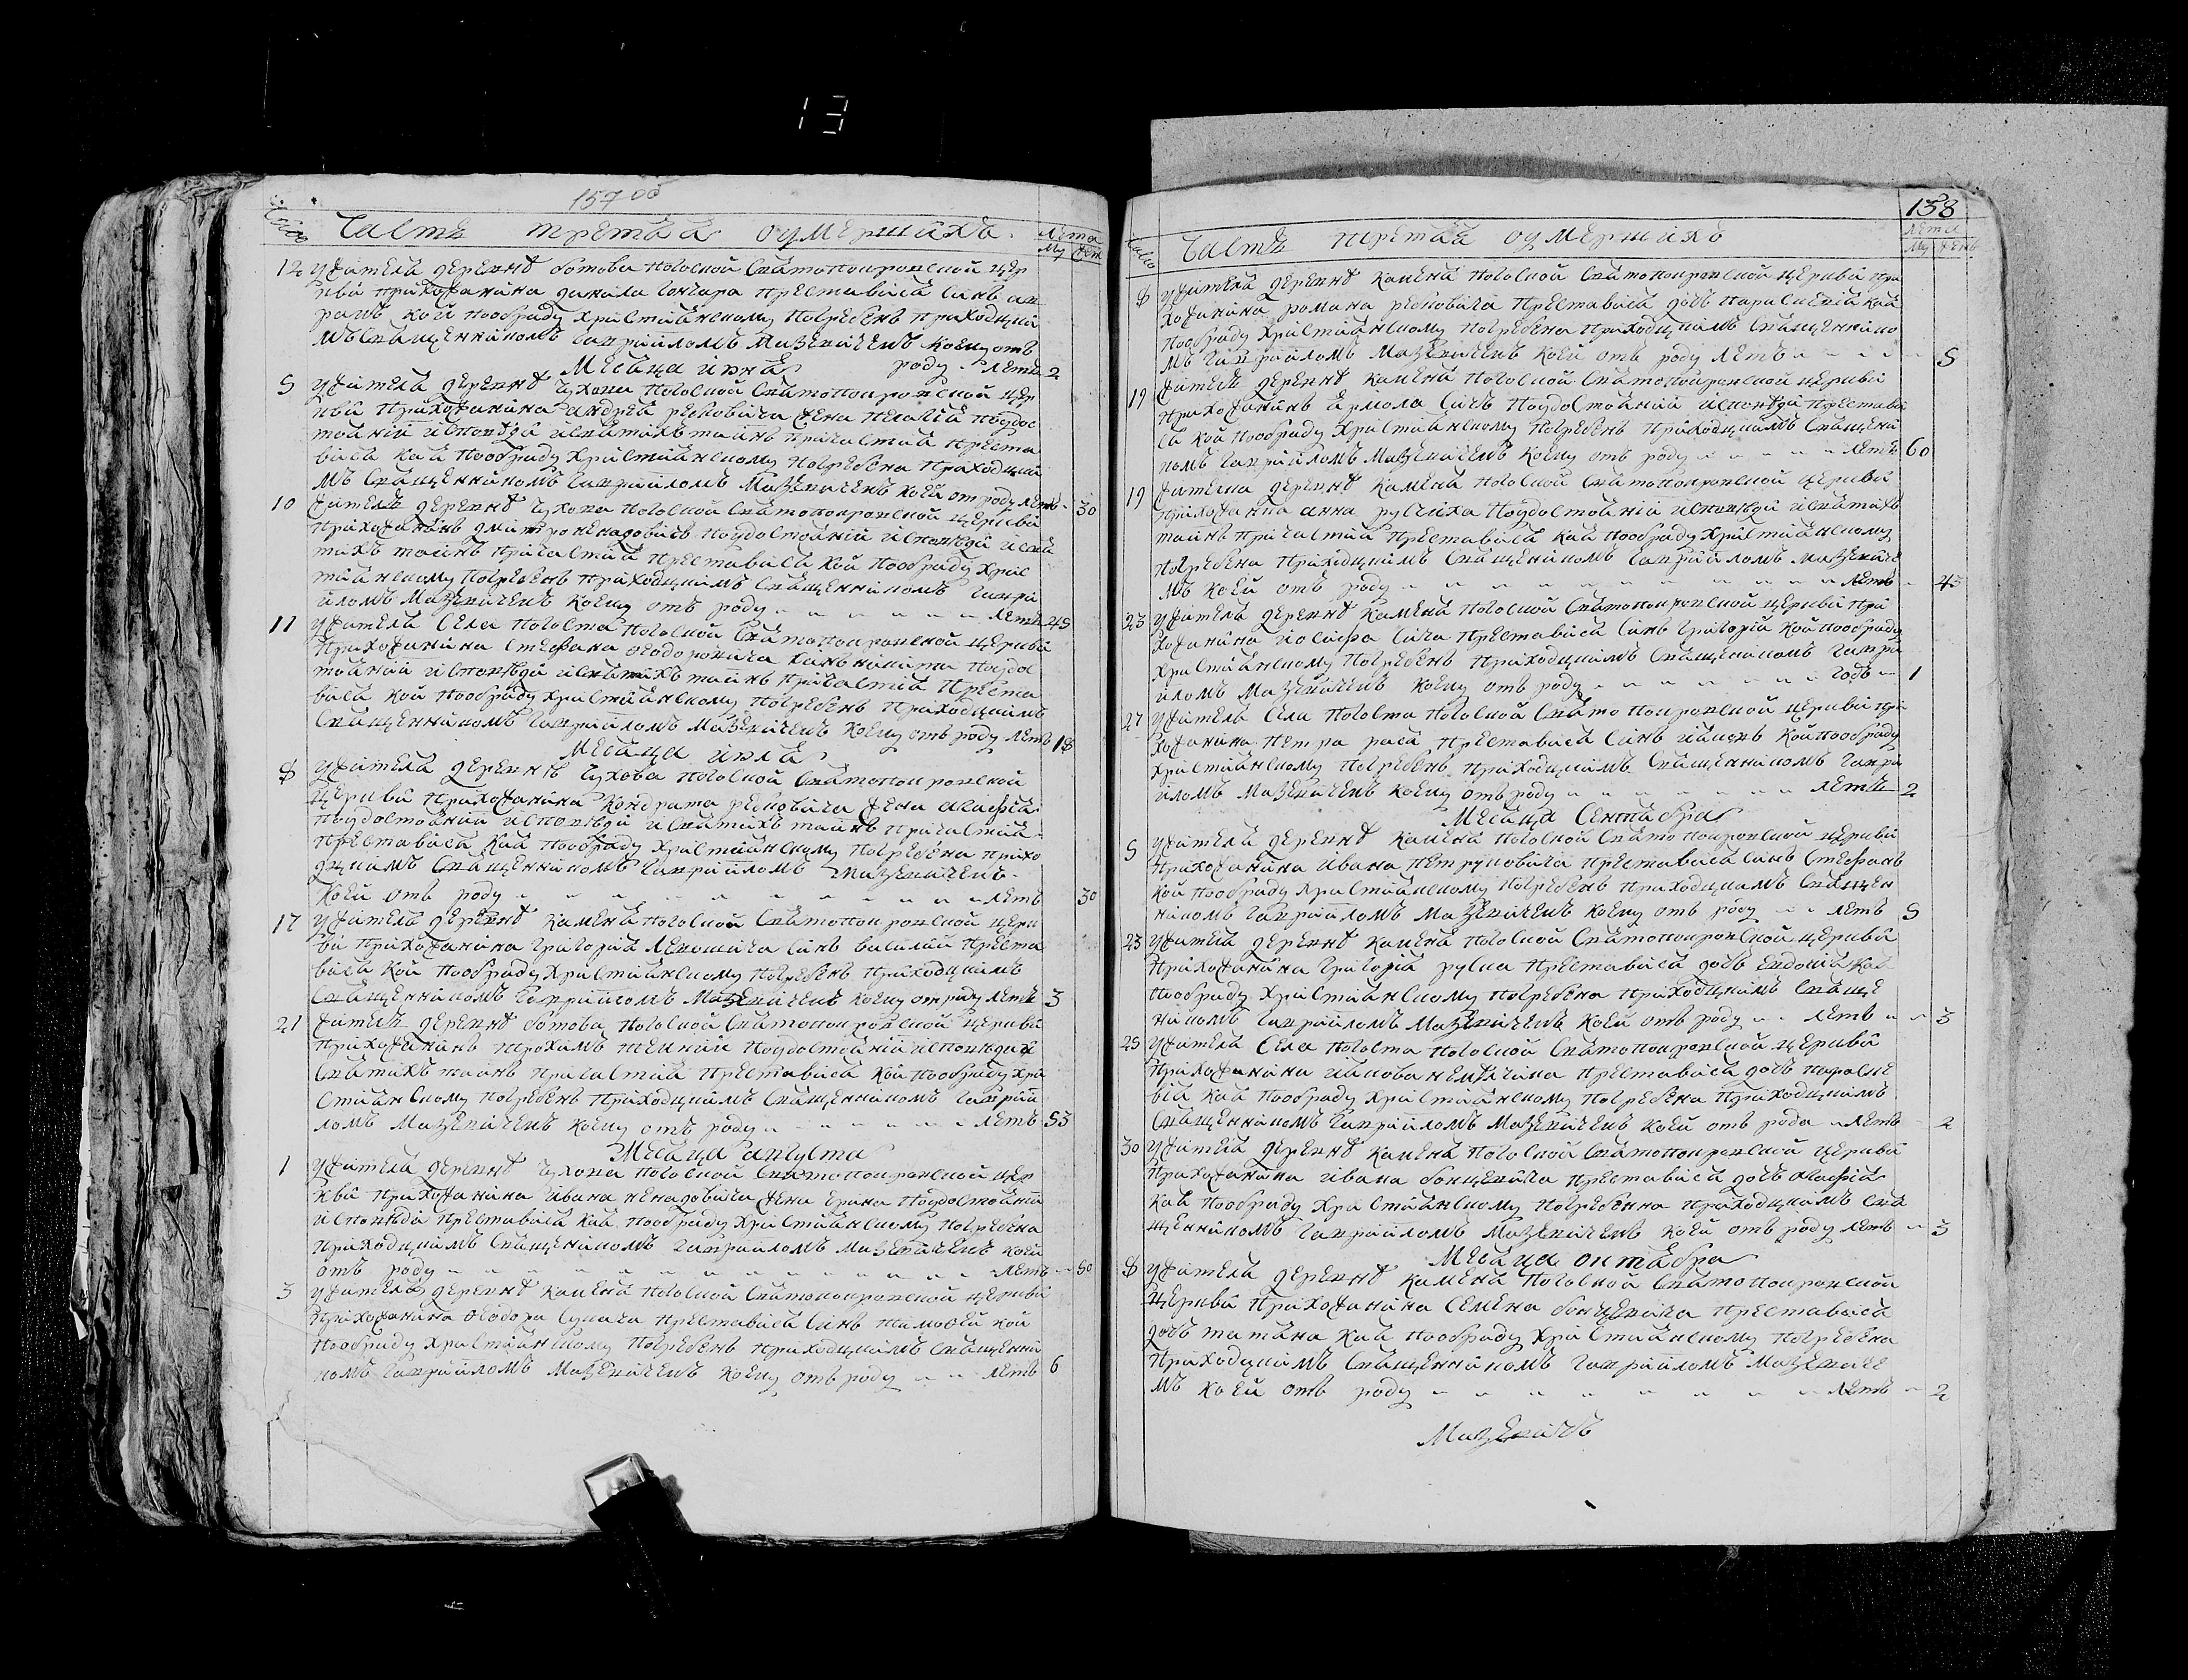 13
157 об
Число Часть третаа оумершихъ. Лета
Му Жен
12 У жителя деревнѣ Ботова Погоской Святопокровской цер
кви прихожанина Данила Гончара преставися синъ
кой пообряду христианскому погребенъ приходски
мъ священникомъ Гавриломъ Мацкевичемъ коему отъ
роду летъ 2
Месаца июня
5 У жителя деревнѣ Чухова Погоской Святопокровской цер
кви прихожанина Андрея Редковича жена поудос
тоянии исповѣди исвятихъ таинъ причастия преста
вися кая пообряду христианскому погребена приходски
мъ священникомъ Гавриломъ Мацкевичемъ коей от роду летъ 30
10 Житель деревнѣ Чухова Погоской Святопокровской церкви
прихожанинъ Дмитро Ненадовичъ поудостоянии исповѣди исвя
тихъ таинъ причастия преставися кой пообряду хрис
тианскому погребенъ приходскимъ священникомъ Гаври
иломъ Мацкевичемъ коему отъ роду летъ 45
11 У жителя села Погоста Погоской Святопокровской церкви
прихожанина Стефана Феодоровича синъ Никита поудос
тоянии исповѣди исвятихъ таинъ причастия преста
вися кой пообряду христианскому погребенъ приходскимъ
священникомъ Гавриломъ Мацкевичемъ коему отъ роду летъ 18
Месаца июля
8 У жителя деревнѣ Чухова Погоской Святопокровской
церкви прихожанина Кондрата Редковича жена Агафия
поудостоянии исповѣди исвятихъ таинъ причастия
преставися кая пообряду христианскому погребена прихо
дскимъ священникомъ Гавриломъ Мацкевичемъ
коей отъ роду летъ 30
17 У жителя деревнѣ Каменя Погоской Святопокровской церк
ви прихожанина Григория Левошича синъ Василий преста
вися кой пообряду христианскому погребенъ приходскимъ
священникомъ Гавриломъ Мацкевичемъ коему от роду летъ 3
21 Житель деревнѣ Ботова Погоской Святопокровской церкви
прихожанинъ Трохимъ поудостоянии исповѣди и
святихъ таинъ причастия преставися кой пообряду хри
стианскому погребенъ приходскимъ священникомъ Гаврии
ломъ Мацкевичемъ коему отъ роду летъ 53
Месаца августа
1 У жителя деревнѣ Чухова Погоской Святопокровской цер
кви прихожанина Ивана Ненадовича жена Ерина поудостоянии
исповѣди преставися кая пообряду христианскому погребена
приходскимъ священикомъ Гавриломъ Мацкевичемъ коей
отъ роду летъ 80
3 У жителя деревнѣ Каменя Погоской Святопокровской церкви
прихожанина Феодора Сукача преставися синъ Тимофей кой
пообряду христианскому погребенъ приходскимъ священни
комъ Гавриломъ Мацкевичемъ коему отъ роду летъ 6
138
Число Часть третая оумершихъ Лета
Му Женъ
8 У жителя деревнѣ Каменя Погоской Святопокровской церкви при
хожанина Романа Редковича преставися дочъ Параскевия кая
пообряду христианскому погребена приходскимъ священико
мъ Гавриломъ Мацкевичемъ коей отъ роду летъ 5
19 Житель деревнѣ Каменя Погоской Святопокровской церкви
прихожанинъ Ермола Сичъ поудостоянии исповѣди престави
ся кой пообряду христианскому погребенъ приходскимъ священи
комъ Гавриломъ Мацкевичемъ коему отъ роду летъ 60
19 Жителка деревнѣ Каменя Погоской Святопокровской церкви
прихожанка Анна Русчиха поудостоянии исповѣди исвятихъ
таинъ причастия преставися кая пообряду христианскому
погребена приходскимъ священикомъ Гавриломъ Мацкевиче
мъ коей отъ роду летъ 45
23 У жителя деревнѣ Каменя Погоской Святопокровской церкви при
хожанина Иосифа Сича преставися синъ Григорий кой пообряду
христианскому погребенъ приходскимъ священикомъ Гаври
иломъ Мацкевичемъ коему отъ роду годъ 1
27 У жителя села Погоста Погоской Святопокровской церкви при
хожанина Петра преставися синъ кой пообряду
христианскому погребенъ приходскимъ священникомъ Гаври
иломъ Мацкевичемъ коему отъ роду летъ 2
Месаца сентабра
5 У жителя деревнѣ Каменя Погоской Святопокровской церкви
прихожанина Ивана Петруковича преставися синъ Стефанъ
кой пообряду христианскому погребенъ приходскимъ священ
никомъ Гавриломъ Мацкевичемъ коему отъ роду летъ 5
23 У жителя деревнѣ Каменя Погоской Святопокровской церкви
прихожанина Григория Руска преставися дочъ Евдокия кая
пообряду христианскому погребена приходскимъ свяще
никомъ Гавриломъ Мацкевичемъ коей отъ роду летъ 3
25 У жителя села Погоста Погоской Святопокровской церкви
прихожанина Иакова преставися дочъ Параске
вия кая пообряду христианскому погребена приходскимъ
священникомъ Гавриломъ Мацкевичемъ коей отъ рода летъ 2
30 У жителя деревнѣ Каменя Погоской Святопокровской церкви
прихожанина Ивана Бонцевича преставися дочъ Агафия
кая пообряду христианскому погребенна приходскимъ свя
щенникомъ Гавриломъ Мацкевичемъ коей отъ роду летъ 3
Месаца октабра
8 У жителя деревнѣ Каменя Погоской Святопокровской
церкви прихожанина Семена Бонцевича преставися
дочъ Татяна кая пообряду христианскому погребена
приходскимъ священникомъ Гавриломъ Мацкевиче
мъ коей отъ роду летъ 2
Мацкевичъ